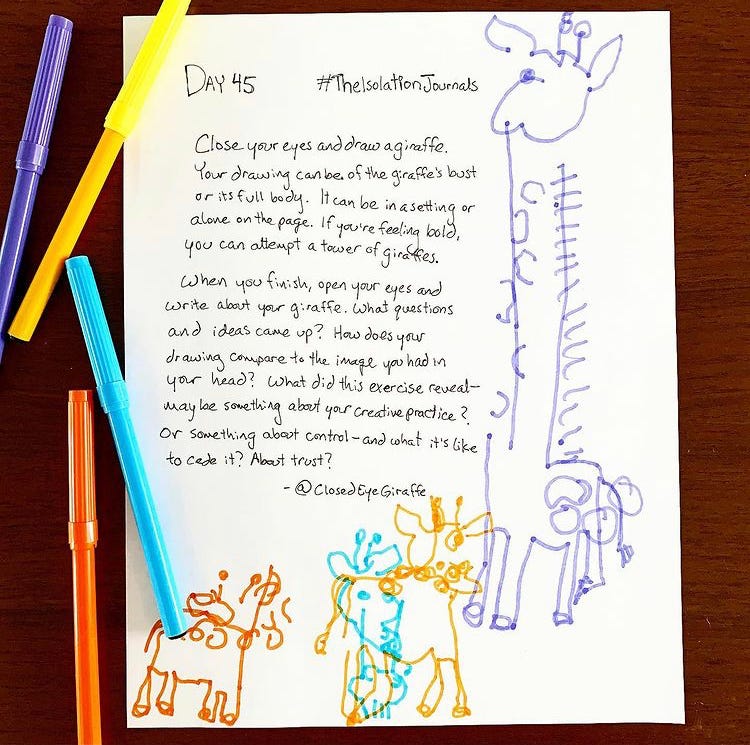 DAY 45 #TheIsolationJournals
Close your eyes and draw a giraffe.
Your drawing can be of the giraffe's bust
or its full body. It can be in a setting or
alone on the page. If you're feeling bold,
you can attempt a tower of giraffes.
When you finish, open your eyes and
write about your giraffe. What questions
and ideas came up? How does your
drawing compare to the image you had in
your head? What did this exercise reveal–
maybe something about your creative practice?
Or something about control – and what it's like
to cede it? About trust?
- @ClosedEyeGiraffe